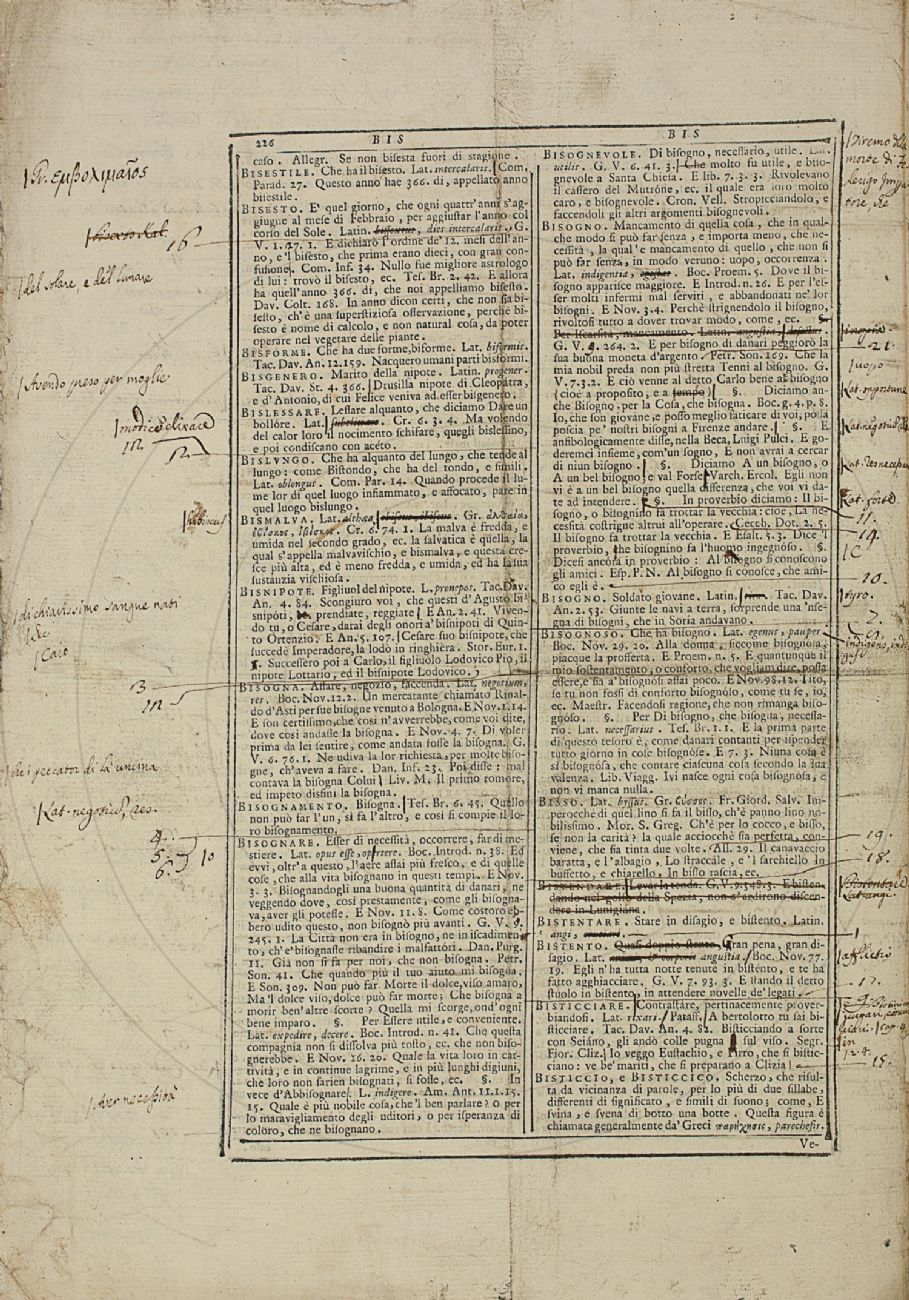 226 BIS BIS
caso. Allegr. Se non bisesta fuori di stagione.
BISESTILE. Che ha il bisesto. Lat. intercalaris. Com.
Parad. 27. Questo anno hae 366. di, appellato anno
bisestile.
BISESTO. E' quel giorno, che ogni quattr'anni s'ag-
giugne al mese di Febbraio, per aggiustar l'anno col
corso del Sole. Latin. dies intercalaris. G.
V. 1. 27. 1. E dichiarò l'ordine de' 12. mesi dell'an-
no, e 'l bisesto, che prima erano dieci, con gran con-
fusione. Com. Inf. 34. Nullo fue migliore astrologo
di lui: trovò il bisesto, ec. Tes. Br. 2. 42. E allora
ha quell'anno 366. di, che noi appelliamo bisesto.
Dav. Colt. 168. In anno dicon certi, che non sia bi-
sesto, ch'è una superstiziosa osservazione, perchè bi-
sesto è nome di calcolo, e non natural cosa, da poter
operare nel vegetare delle piante.
BISFORME. Che ha due forme, biforme. Lat. biformis.
Tac. Dav. An. 12. 159. Nacquero umani parti bisformi.
BISGENERO. Marito della nipote. Latin. progener.
Tac. Dav. St. 4. 366. Drusilla nipote di Cleopatra,
e d'Antonio, di cui Felice veniva ad esser bisgenero.
BISLESSARE. Lessare alquanto, che diciamo Dare un
bollòre. Lat. Cr. 6. 3. 4. Ma volendo
del calor loro il nocimento schifare, quegli bislessino,
e poi condiscano con aceto.
BISLUNGO. Che ha alquanto del lungo, che tende al
lungo: come Bistondo, che ha del tondo, e simili.
Lat. oblongus. Com. Par. 14. Quando procede il lu-
me lor di quel luogo infiammato, e affocato, pare in
quel luogo bislungo.
BISMALVA. Lat. althæa Gr.
Cr. 6. 74. 1. La malva è fredda, e
umida nel secondo grado, ec. la salvatica è quella, la
qual s'appella malvavischio, e bismalva, e questa cre-
sce più alta, ed è meno fredda, e umida, ed ha la sua
sustanzia vischiosa.
BISNIPOTE. Figliuol del nipote. L. pronepos. Tac. Dav.
An. 4. 84. Scongiuro voi, che questi d'Agusto Bi-
snipoti, prendiate, reggiate. E An. 2. 41. Viven-
do tu, o Cesare, darai degli onori a' bisnipoti di Quin-
to Ortenzio. E An. 5. 107. Cesare suo bisnipote, che
succedè Imperadore, la lodò in ringhiera. Stor. Eur. 1.
Successero poi a Carlo, il figliuolo Lodovico Pio, il
nipote Lottario, ed il bisnipote Lodovico.
BISOGNA. Affare, negozio, faccenda. Lat. negotium,
res. Boc. Nov. 12. 2. Un mercatante chiamato Rinal-
do d'Asti per sue bisogne venuto a Bologna. E Nov. 1. 14.
E son certissimo, che così n'avverrebbe, come voi dite,
dove così andasse la bisogna. E Nov. 4. 7. Di voler
prima da lei sentire, come andata fosse la bisogna. G.
V. 6. 76. 1. Ne udiva la lor richiesta, per molte biso-
gne, ch'aveva a fare. Dan. Inf. 23. Poi disse: mal
contava la bisogna Colui. Liv. M. Il primo romore,
ed impeto disfini la bisogna.
BISOGNAMENTO. Bisogna. Tes. Br. 6. 45. Quello
non può far l'un, sì fa l'altro, e così si compie il lo-
ro bisognamento.
BISOGNARE. Esser di necessità, occorrere, far di me-
stiere. Lat. opus esse, oportere. Boc. Introd. n. 38. Ed
evvi, oltr'a questo, l'aere assai più fresco, e di quelle
cose, che alla vita bisognano in questi tempi. E Nov.
3. 3. Bisognandogli una buona quantità di danari, ne
veggendo dove, così prestamente, come gli bisogna-
va, aver gli potesse. E Nov. 11. 8. Come costoro eb-
bero udito questo, non bisognò più avanti. G. V. 9.
245. 1. La Città non era in bisogno, ne in iscadimen-
to, ch'e' bisognasse ribandire i malfattori. Dan. Purg.
11. Già non si fa per noi, che non bisogna. Petr.
Son. 41. Che quando più il tuo aiuto mi bisogna.
E Son. 309. Non può far Morte il dolce viso amaro,
Ma 'l dolce viso, dolce può far morte; Che bisogna a
morir ben' altre scorte? Quella mi scorge, ond'ogni
bene imparo. §. Per Essere utile, e conveniente.
Lat. expedire, decere. Boc. Introd. n. 41. Che questa
compagnia non si dissolva più tosto, ec. che non biso-
gnerebbe. E Nov. 16. 20. Quale la vita loro in cat-
tività, e in continue lagrime, e in più lunghi digiuni,
che loro non sarien bisognati, si fosse, ec. §. In
vece d'Abbisognare. L. indigere. Am. Ant. 11. 1. 15.
15. Quale è più nobile cosa, che 'l ben parlare? o per
lo maravigliamento degli uditori, o per isperanza di
coloro, che ne bisognano.
BISOGNEVOLE. Di bisogno, necessario, utile. Lat.
utilis. G. V. 6. 41. 3. Che molto fu utile, e biso-
gnevole a Santa Chiesa. E lib. 7. 3. 3. Rivolevano
il cassero del Mutróne, ec. il quale era loro molto
caro, e bisognevole. Cron. Vell. Stropicciandolo, e
faccendoli gli altri argomenti bisognevoli.
BISOGNO. Mancamento di quella cosa, che in qual-
che modo si può far senza, e importa meno, che ne-
cessità, la qual'e mancamento di quello, che non si
può far senza, in modo veruno: uopo, occorrenza.
Lat. indigentia, Boc. Proem. 5. Dove il bi-
sogno apparisce maggiore. E Introd. n. 26. E per l'es-
ser molti infermi mal serviti, e abbandonati ne' lor
bisogni. E Nov. 3. 4. Perchè strignendolo il bisogno,
rivoltosi tutto a dover trovar modo, come, ec. §.
Per Iscarsità, mancamento. Latin. angustia,
G. V. 9. 264. 2. E per bisogno di danari peggiorò la
sua buona moneta d'argento. Petr. Son. 169. Che la
mia nobil preda non più stretta Tenni al bisogno. G.
V. 7. 3. 2. E ciò venne al detto Carlo bene a bisogno
(cioè a proposito, e a tempo) §. Diciamo an-
che Bisogno, per la Cosa, che bisogna. Boc. g. 4. p. 8.
Io, che son giovane, e posso meglio faticare di voi, posso
poscia pe' nostri bisogni a Firenze andare. §. E
anfibologicamente disse, nella Beca, Luigi Pulci. E go-
deremci insieme, com'un sogno, E non avrai a cercar
di niun bisogno. §. Diciamo A un bisogno, o
A un bel bisogno; e val Forse. Varch. Ercol. Egli non
vi è a un bel bisogno quella differenza, che voi vi da-
te ad intendere. §. In proverbio diciamo: Il bi-
sogno, o bisognino fa trottar la vecchia: cioè, La ne-
cessità costrigne altrui all'operare. Cecch. Dot. 2. 5.
Il bisogno fa trottar la vecchia. E Esalt. 5. 3. Dice 'l
proverbio, che bisognino fa l'huomo ingegnoso. §.
Dicesi ancora in proverbio: Al bisogno si conoscono
gli amici. Esp. P. N. Al bisogno si conosce, che ami-
co egli è.
BISOGNO. Soldato giovane. Latin. Tac. Dav.
An. 2. 53. Giunte le navi a terra, sorprende una 'nse-
gna di bisogni, che in Soria andavano.
BISOGNOSO. Che ha bisogno. Lat. egenus, pauper.
Boc. Nov. 29. 20. Alla donna, siccome bisognosa,
piacque la profferta. E Proem. n. 5. E quantunque il
mio sostentamento, o conforto, che vogliam dire, possa
essere, e sia a' bisognosi assai poco. E Nov. 98. 12. Tito,
se tu non fossi di conforto bisognoso, come tu se, io,
ec. Maestr. Facendosi ragione, che non rimanga biso-
gnoso. §. Per Di bisogno, che bisogna, necessa-
rio. Lat. necessarius. Tes. Br. 1. 1. E la prima parte
di questo tesoro è, come danari contanti per ispender
tutto giorno in cose bisognose. E 7. 3. Niuna cosa è
sì bisognosa, che contare ciascuna cosa secondo la sua
valenza. Lib. Viagg. Ivi nasce ogni cosa bisognosa, e
non vi manca nulla.
BISSO. Lat. byssus. Gr. βύσσος. Fr. Giord. Salv. Im-
perocche di quel lino si fa il bisso, ch'è panno lino no-
bilissimo. Mor. S. Greg. Ch'è per lo cocco, e bisso,
se non la carità? la quale acciocchè sia perfetta, con-
viene, che sia tinta due volte. All. 29. Il canavaccio
baratta, e l'albagio, Lo straccale, e 'l sarchiello In
bussetto, e chiarello, In bisso rascia, ec.
BISTENDARE. Levar la tenda. G. V. 9. 348. 3. E bisten-
dando nel golfo della Spezia, non s'ardirono discen-
dere in Lunigiana.
BISTENTARE. Stare in disagio, e bistento. Latin.
angi,
BISTENTO. Quasi doppio stento, Gran pena, gran di-
sagio. Lat. angustia. Boc. Nov. 77.
19. Egli n'ha tutta notte tenute in bistento, e te ha
fatto agghiacciare. G. V. 7. 93. 3. E stando il detto
stuolo in bistento, in attendere novelle de' legati.
BISTICCIARE. Contrastare, pertinacemente prover-
biandosi. Lat. rixari. Pataff. A bertolotto tu sai bi-
sticciare. Tac. Dav. An. 4. 82. Bisticciando a sorte
con Seiano, gli andò colle pugna sul viso. Segr.
Fior. Cliz. Io veggo Eustachio, e Pirro, che si bistic-
ciano: ve be' mariti, che si preparano a Clizia!
BISTICCIO, e BISTICCICO. Scherzo, che risul-
ta da vicinanza di parole, per lo più di due sillabe,
differenti di significato, e simili di suono; come, E
svina, e svena di botto una botte. Questa figura è
chiamata generalmente da' Greci παρήχησις, parechesis.
Ve-
Gr. εμβολιμαῖος
16
del solare, e del lunare
Avendo preso per moglie
12
di chiarissimo sangue nati
&c.
Caro
13
che i peccator di là uncina
Lat. negotiũ, res.
4.
5.
6.
10
Aver necessità
21.
uopo
Lat. opportune
11.
14.
10.
tyro.
2.
9.
19.
18.
1
afflictio
17.
15.